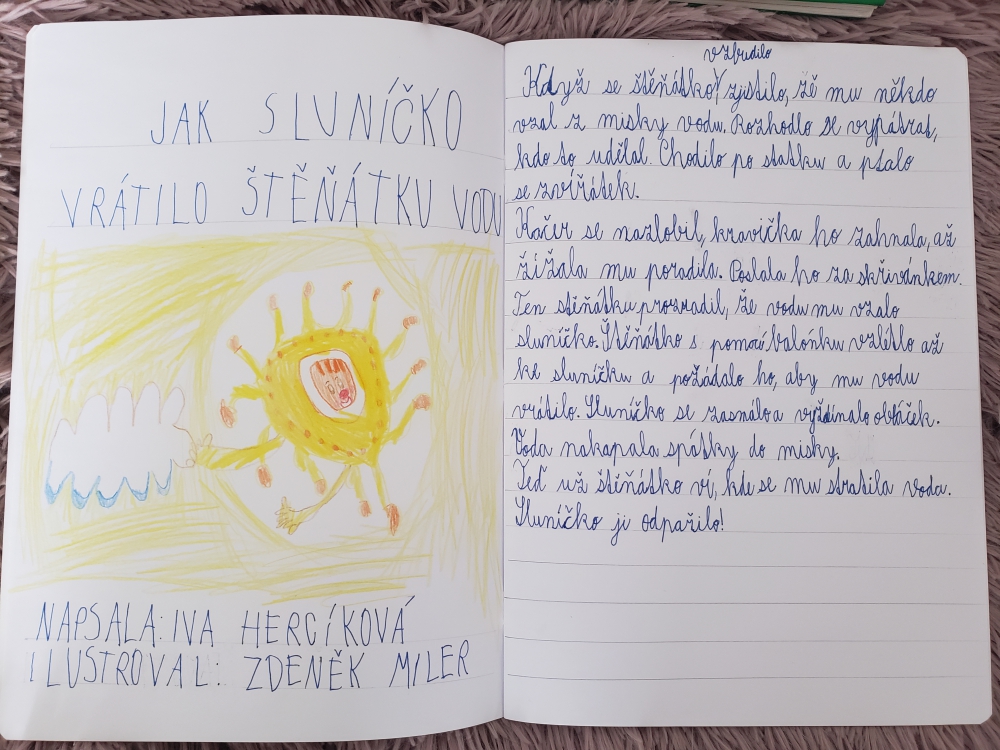 JAK SLUNÍČKO
VRÁTILO ŠTĚŇÁTKU VODU
NAPSALA: IVA HERCÍKOVÁ
ILUSTROVAL: ZDENĚK MILER
vzbudilo
Když se štěňátko, zjistilo, že mu někdo
vzal z misky vodu. Rozhodlo se vypátrat,
kdo to udělal. Chodilo po statku a ptalo
se zvířátek.
Kačer se nazlobil, kravička ho zahnala, až
žížala mu poradila. Poslala ho za skřivánkem.
Ten štěňátku prozradil, že vodu mu vzalo
sluníčko. Štěňátko s pomocí balónku vzlétlo až
ke sluníčku a požádalo ho, aby mu vodu
vrátilo. Sluníčko se zasmálo a vyždímalo obláček.
Voda nakapala spátky do misky.
Teď už štěňátko ví, kde se mu stratila voda.
Sluníčko ji odpařilo!